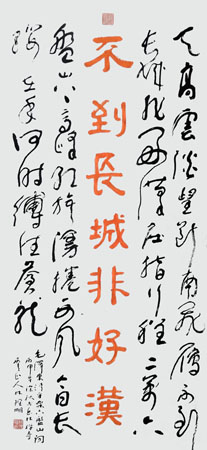 天高雲淡望斷南飛雁不到
長城非好漢屈指行程二萬六
不到長城非好漢
盤山上高峰紅旗漫捲西風今日長
纓在手何時縛住蒼龍
毛澤東清平樂六盤山詞